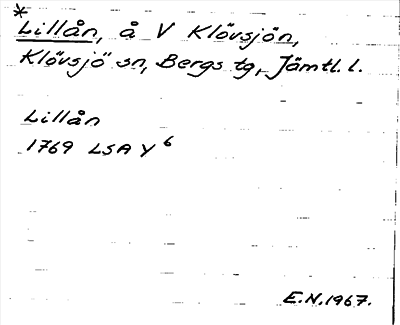 *
Lillån, å V Klövsjön,
Klövsjö sn, Bergs tg, Jämtl. l.
Lillån
1769 LSA Y⁶
E.N.1967.